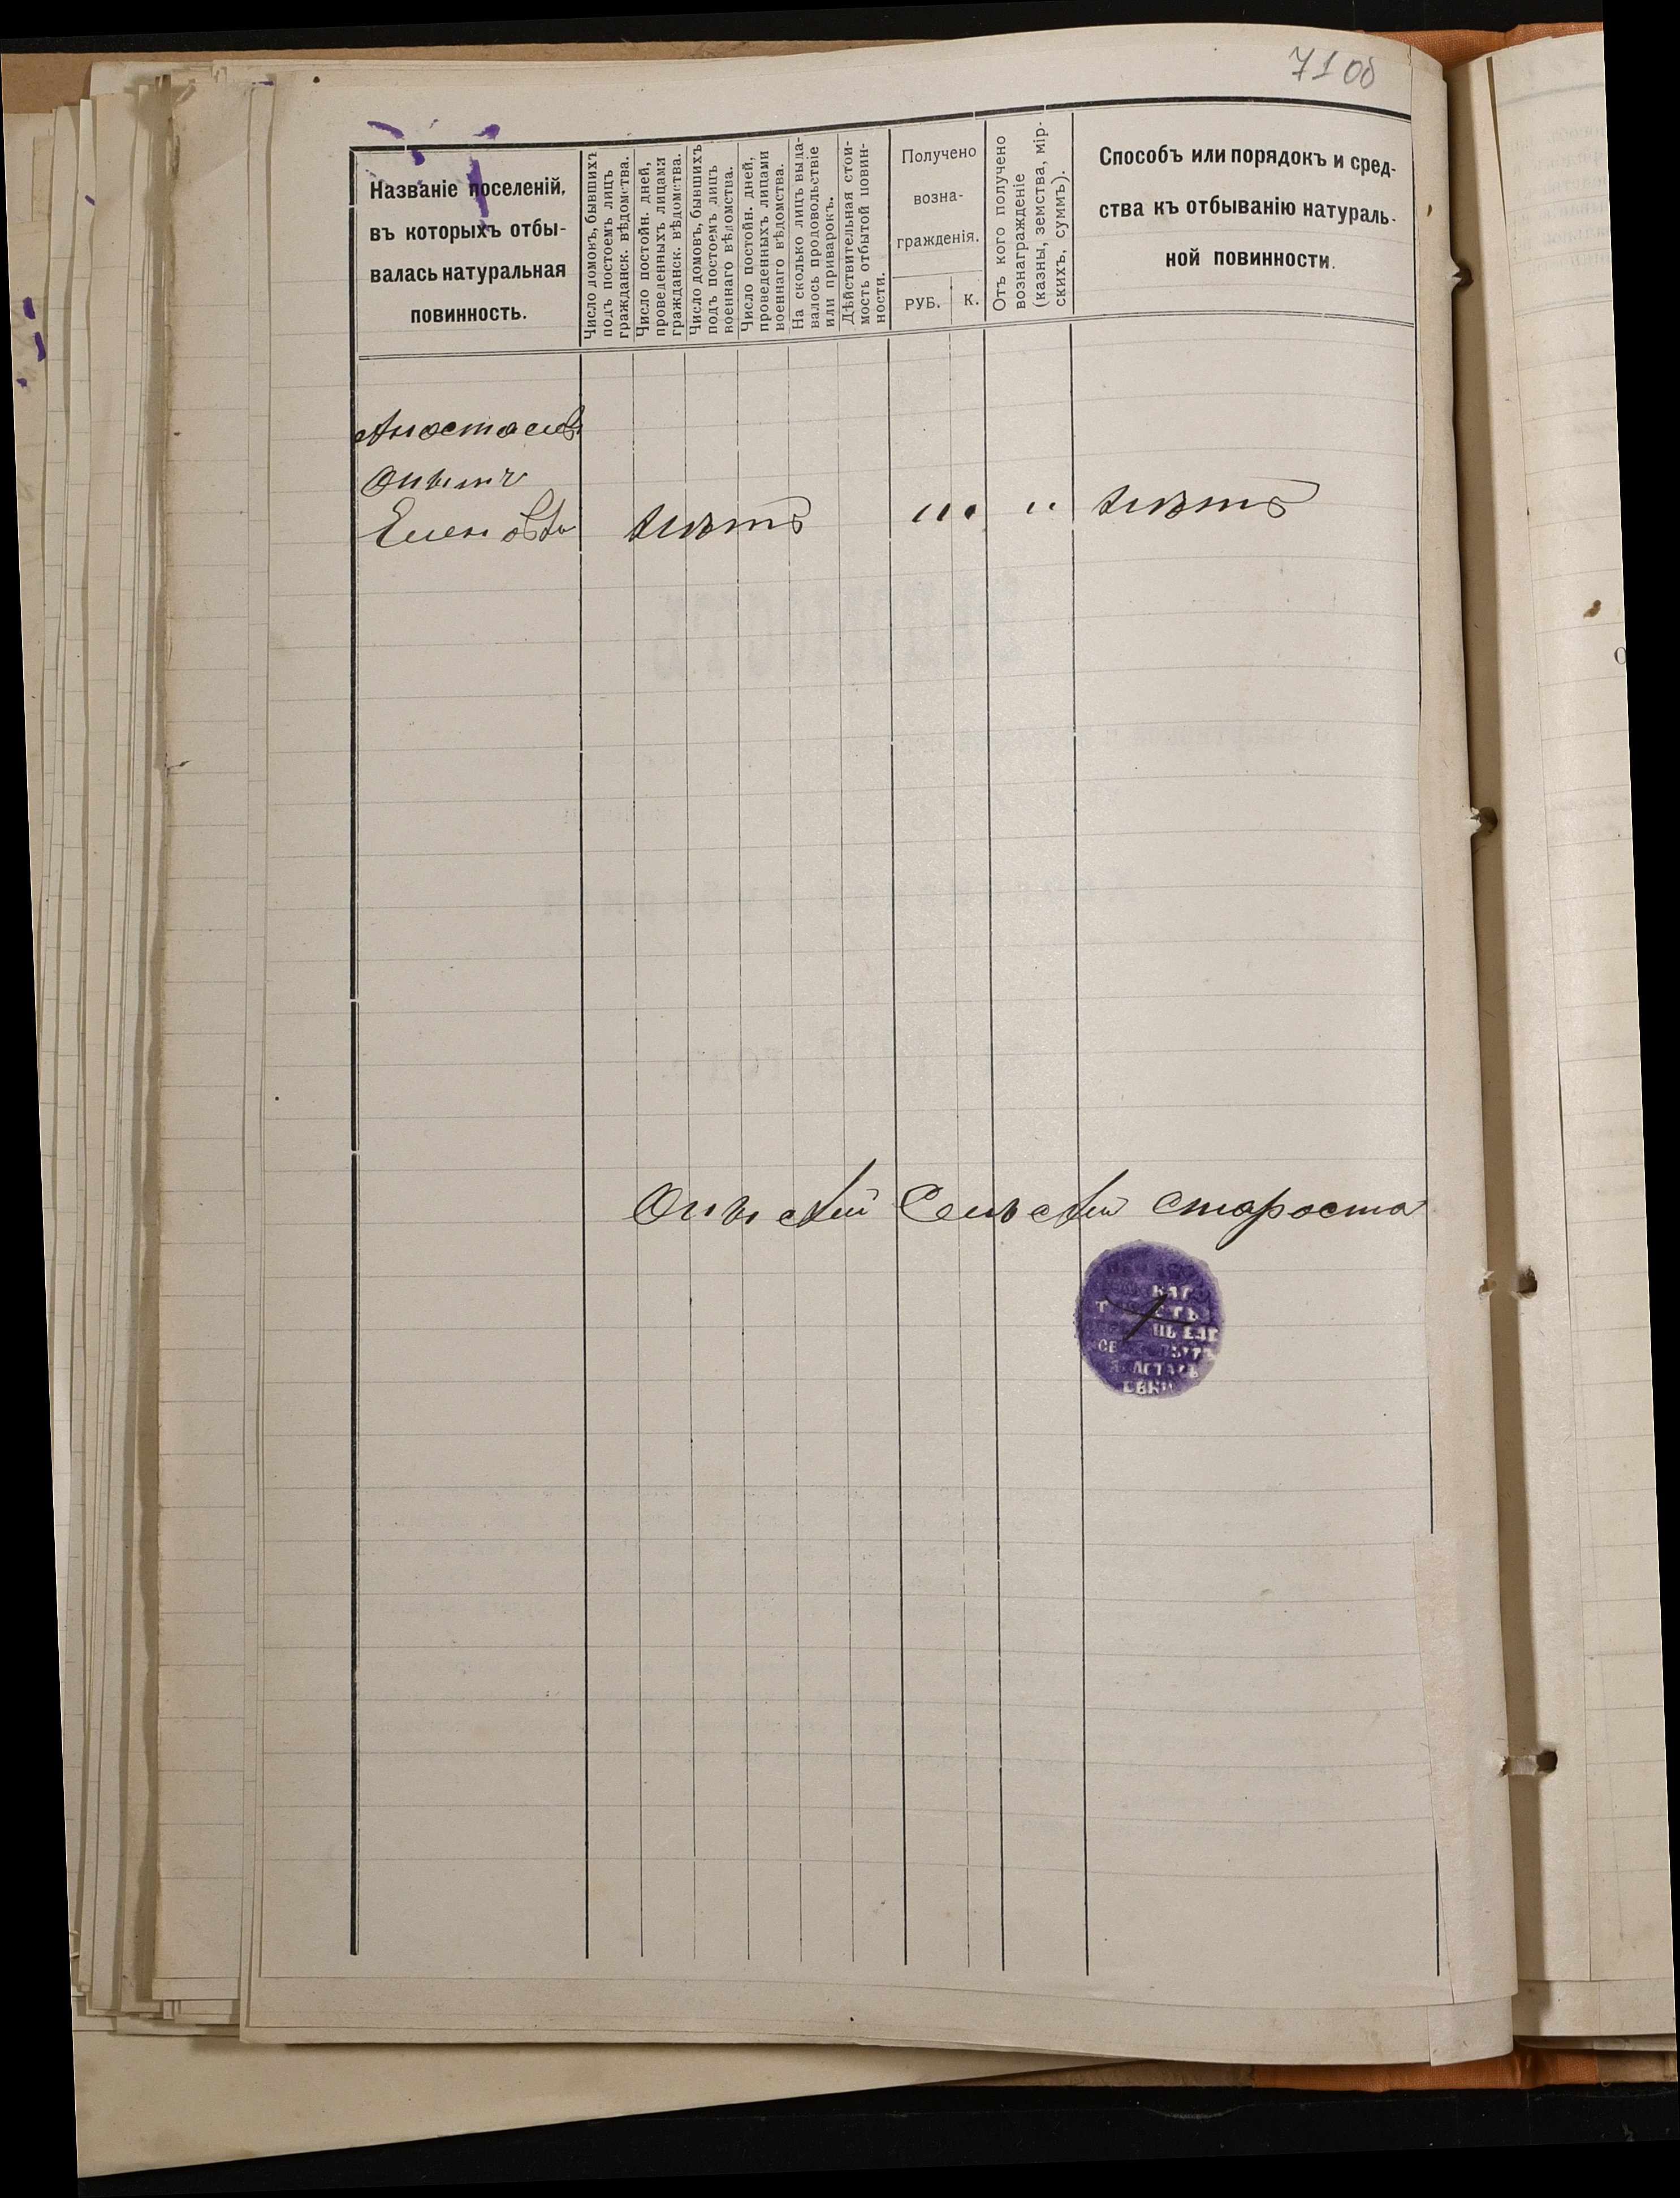 71 об
Названіе поселеній,
въ которыхъ отбы-
валась натуральная
повинность.
Число домовъ, бывшихъ
подъ постоемъ лицъ
гражданск. вѣдомства.
Число постойн. дней,
проведенныхъ лицами
гражданск. вѣдомства.
Число домовъ, бывшихъ
подъ постоемъ лицъ
военнаго вѣдомства.
Число постойн. дней,
проведенныхъ лицами
военнаго вѣдомства.
На сколько лицъ выда-
валось продовольствіе
или приварокъ.
Дѣйствительная стои-
мость отбытой повин-
ности.
Получено
возна-
гражденія.
РУБ. К.
Отъ кого получено
вознагражденіе
(казны, земства, мір-
скихъ, суммъ).
Способъ или порядокъ и сред-
ства къ отбыванію натураль-
ной повинности.
нѣтъ " " нѣтъ
Сельскій староста